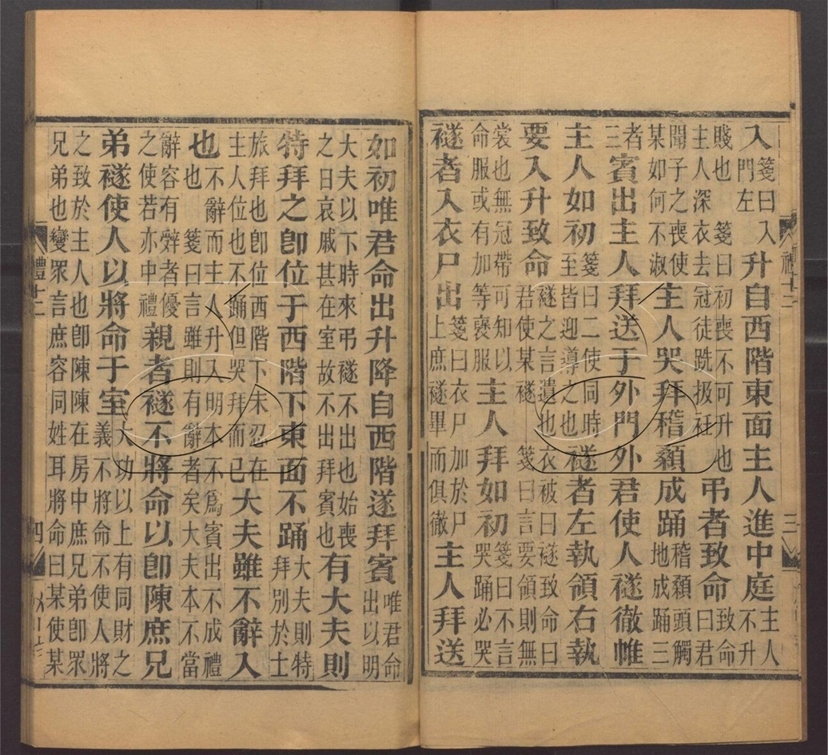 入箋曰入門左升自西階東面主人進中庭主人不升
賤也　箋曰初喪不可升也主人深衣去冠徒跣扱衽弔者致命致命曰君
聞子之喪使某如何不淑主人哭拜稽顙成踊稽顙頭觸地成踊三
者三賓出主人拜送于外門外君使人襚徹帷
主人如初箋曰二使同時至皆迎導之也襚者左執領右執
要入升致命襚之言遺也衣被曰襚致命曰君使某襚　箋曰言要領則無
裳也無冠帶可知以命服或有加等褒服主人拜如初箋曰不言哭踊必哭
襚者入衣尸出箋曰衣尸加於尸上庶襚畢而俱徹主人拜送
禮十二
三
如初唯君命出升降自西階遂拜賓唯君命出以明
大夫以下時來弔襚不出也始喪之日哀戚甚在室故不出拜賓也有大夫則
特拜之卽位于西階下東面不踊大夫則特拜別於士
旅拜也卽位西階下未忍在主人位也不踊但哭拜而已大夫雖不辭入
也不辭而主人升入明本不爲賓出不成禮也　箋曰言雖則有辭者矣大夫本不當
辭容有者優之使若亦中禮親者襚不將命以卽陳庶兄
弟襚使人以將命于室大功以上有同財之義不將命不使人將
之致於主人也卽陳陳在房中庶兄弟卽眾兄弟也變眾言庶容同姓耳將命曰某使某
禮十二
四